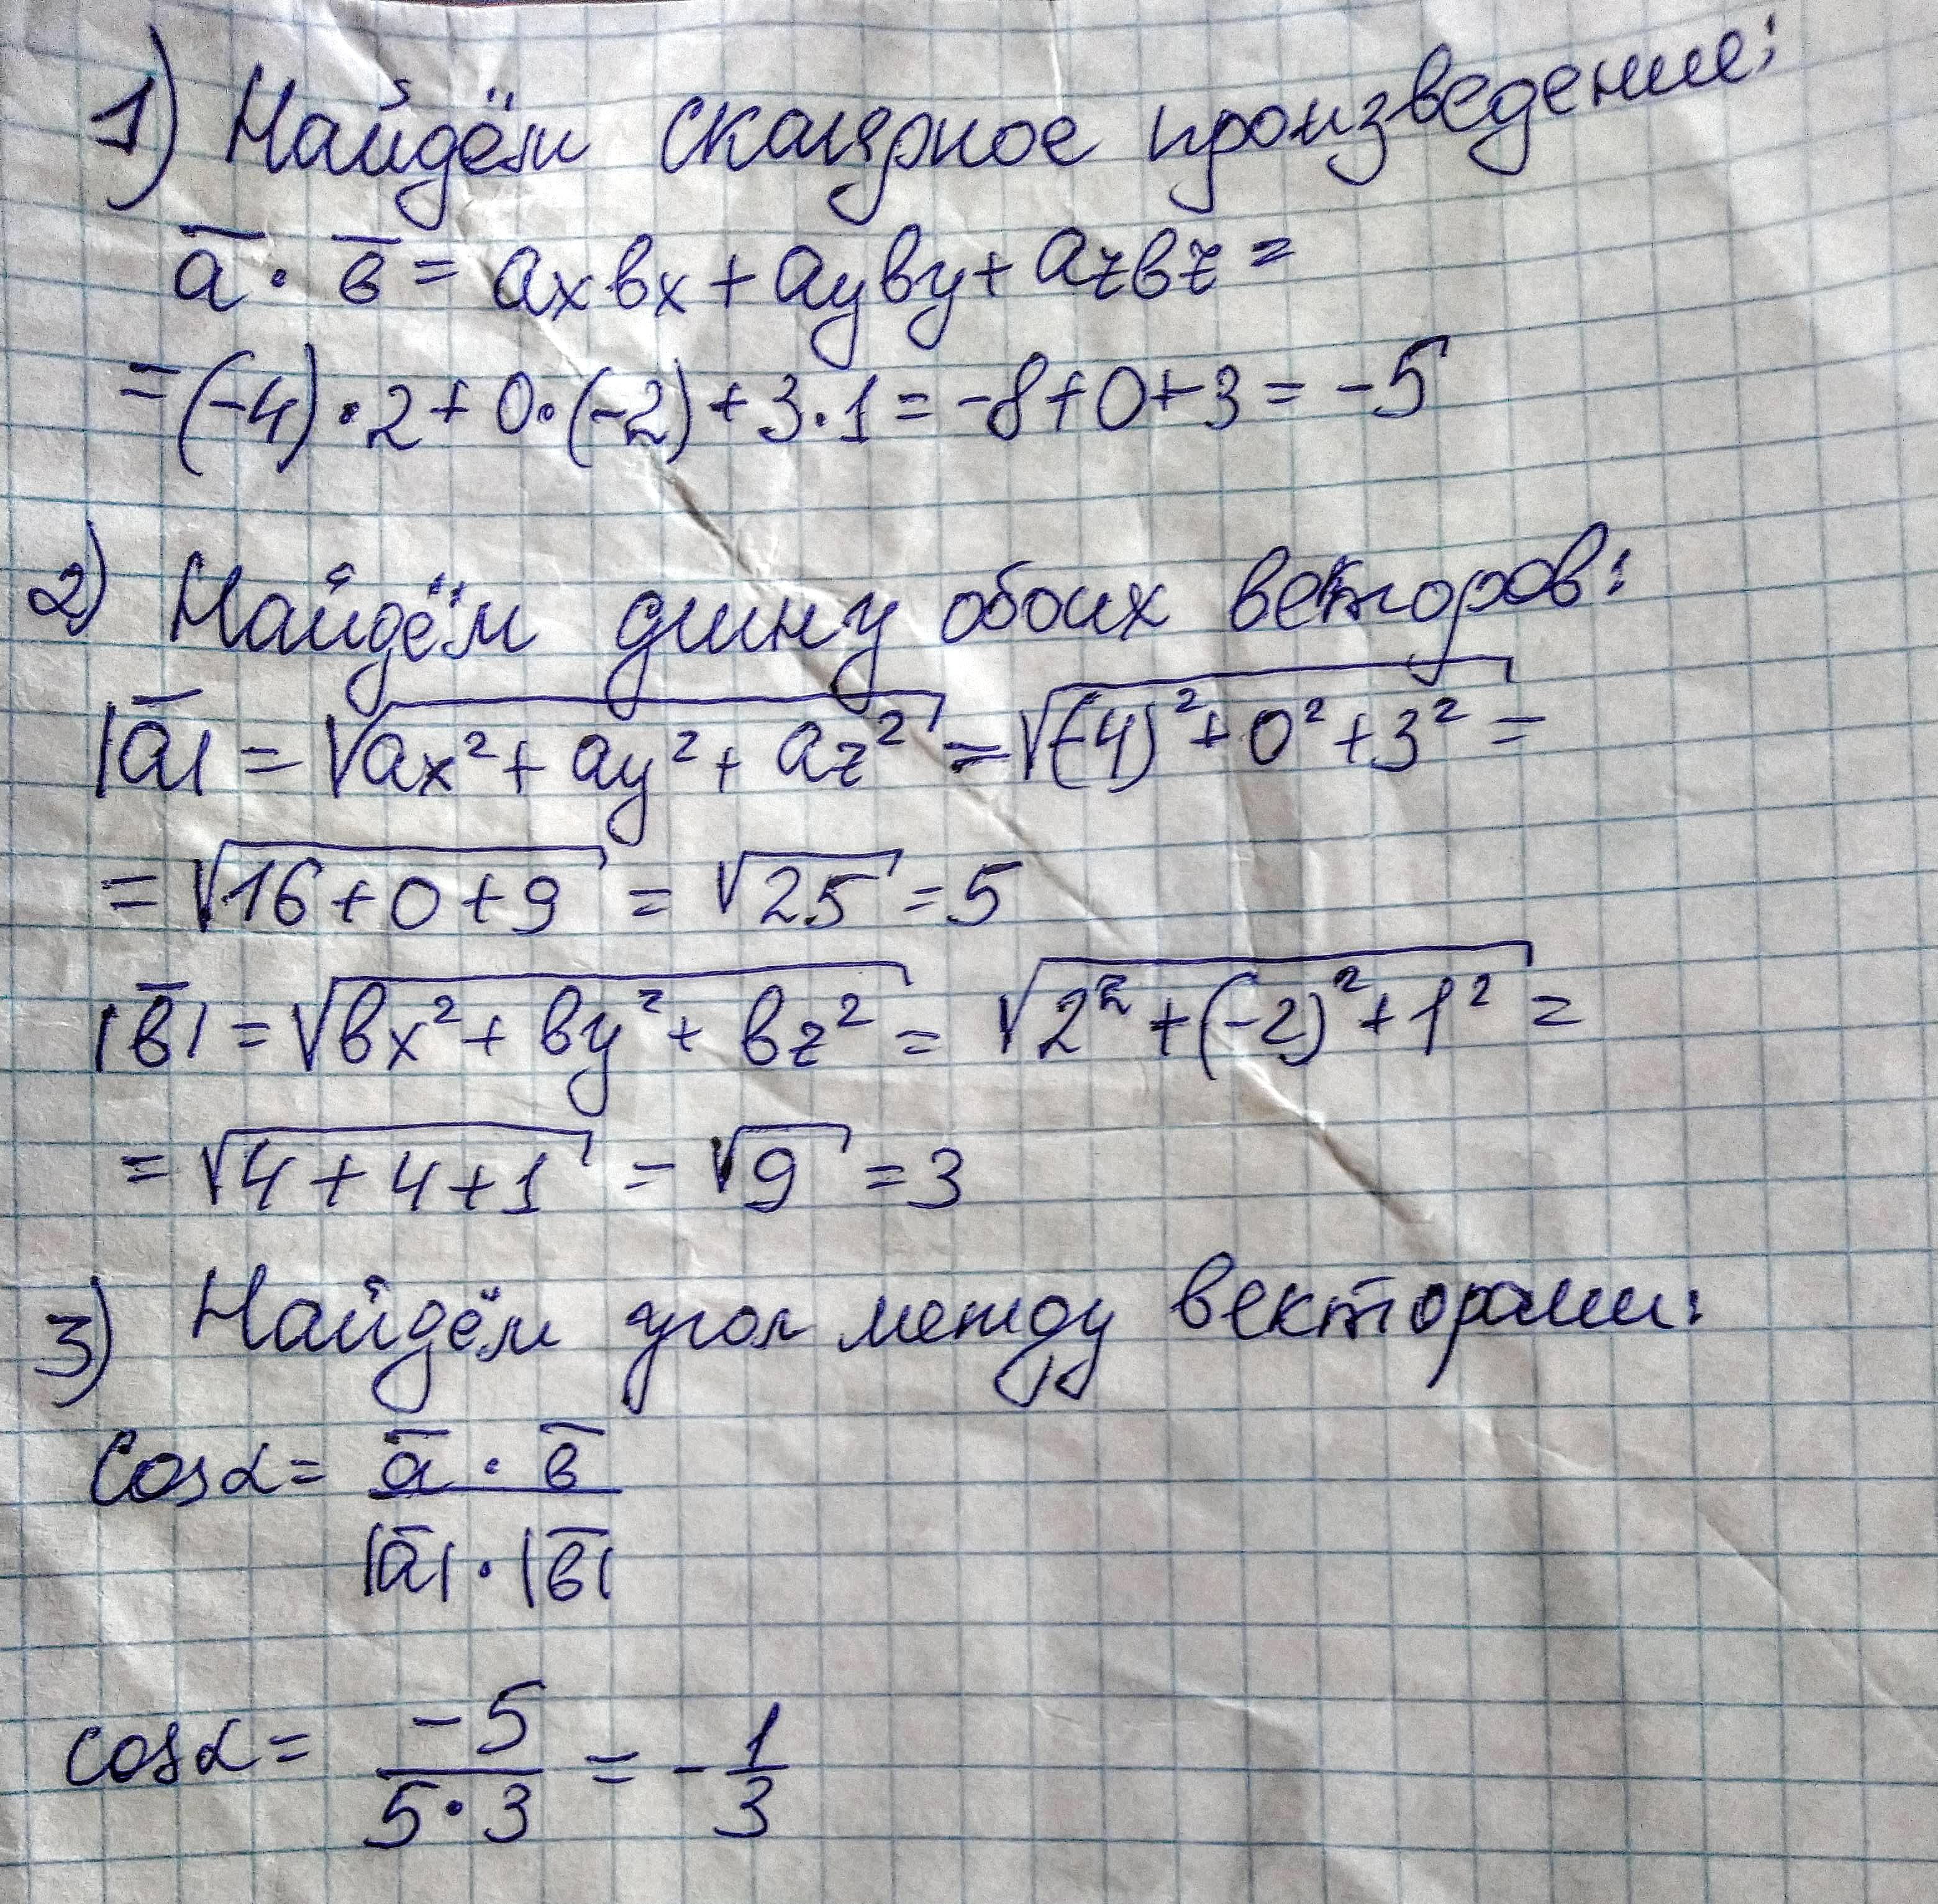 1) Найдём скалярное произведение:
a̅ · в̅ = axвx + ayвy + azвz =
= (-4) · 2 + 0 · (-2) + 3 · 1 = -8 + 0 + 3 = -5
2) Найдём длину обоих векторов:
|a̅| = √(ax² + ay² + az²) = √((-4)² + 0² + 3²) =
= √(16 + 0 + 9) = √25 = 5
|в̅| = √(вx² + вy² + вz²) = √(2² + (-2)² + 1²) =
= √(4 + 4 + 1) = √9 = 3
3) Найдём угол между векторами:
cosα = a̅ · в̅ / |a̅| · |в̅|
cosα = -5 / 5 · 3 = - 1/3